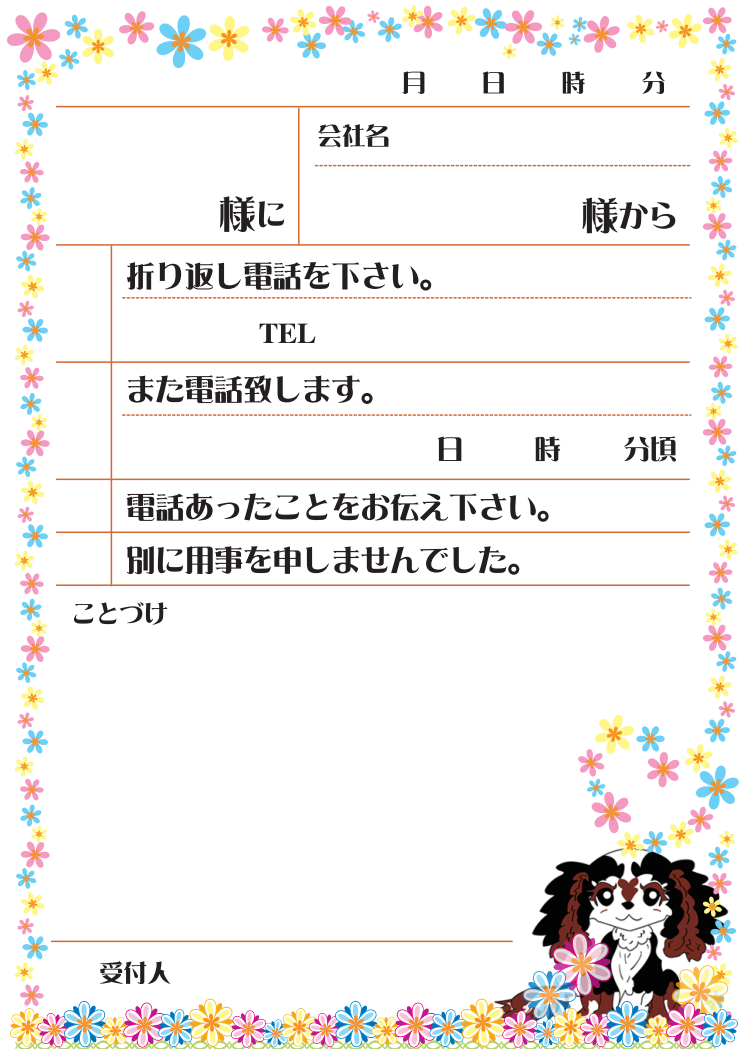 月 日 時 分
会社名
様に
様から
折り返し電話を下さい。
TEL
また電話致します。
日 時 分頃
電話あったことをお伝え下さい。
別に用事を申しませんでした。
ことづけ
受付人